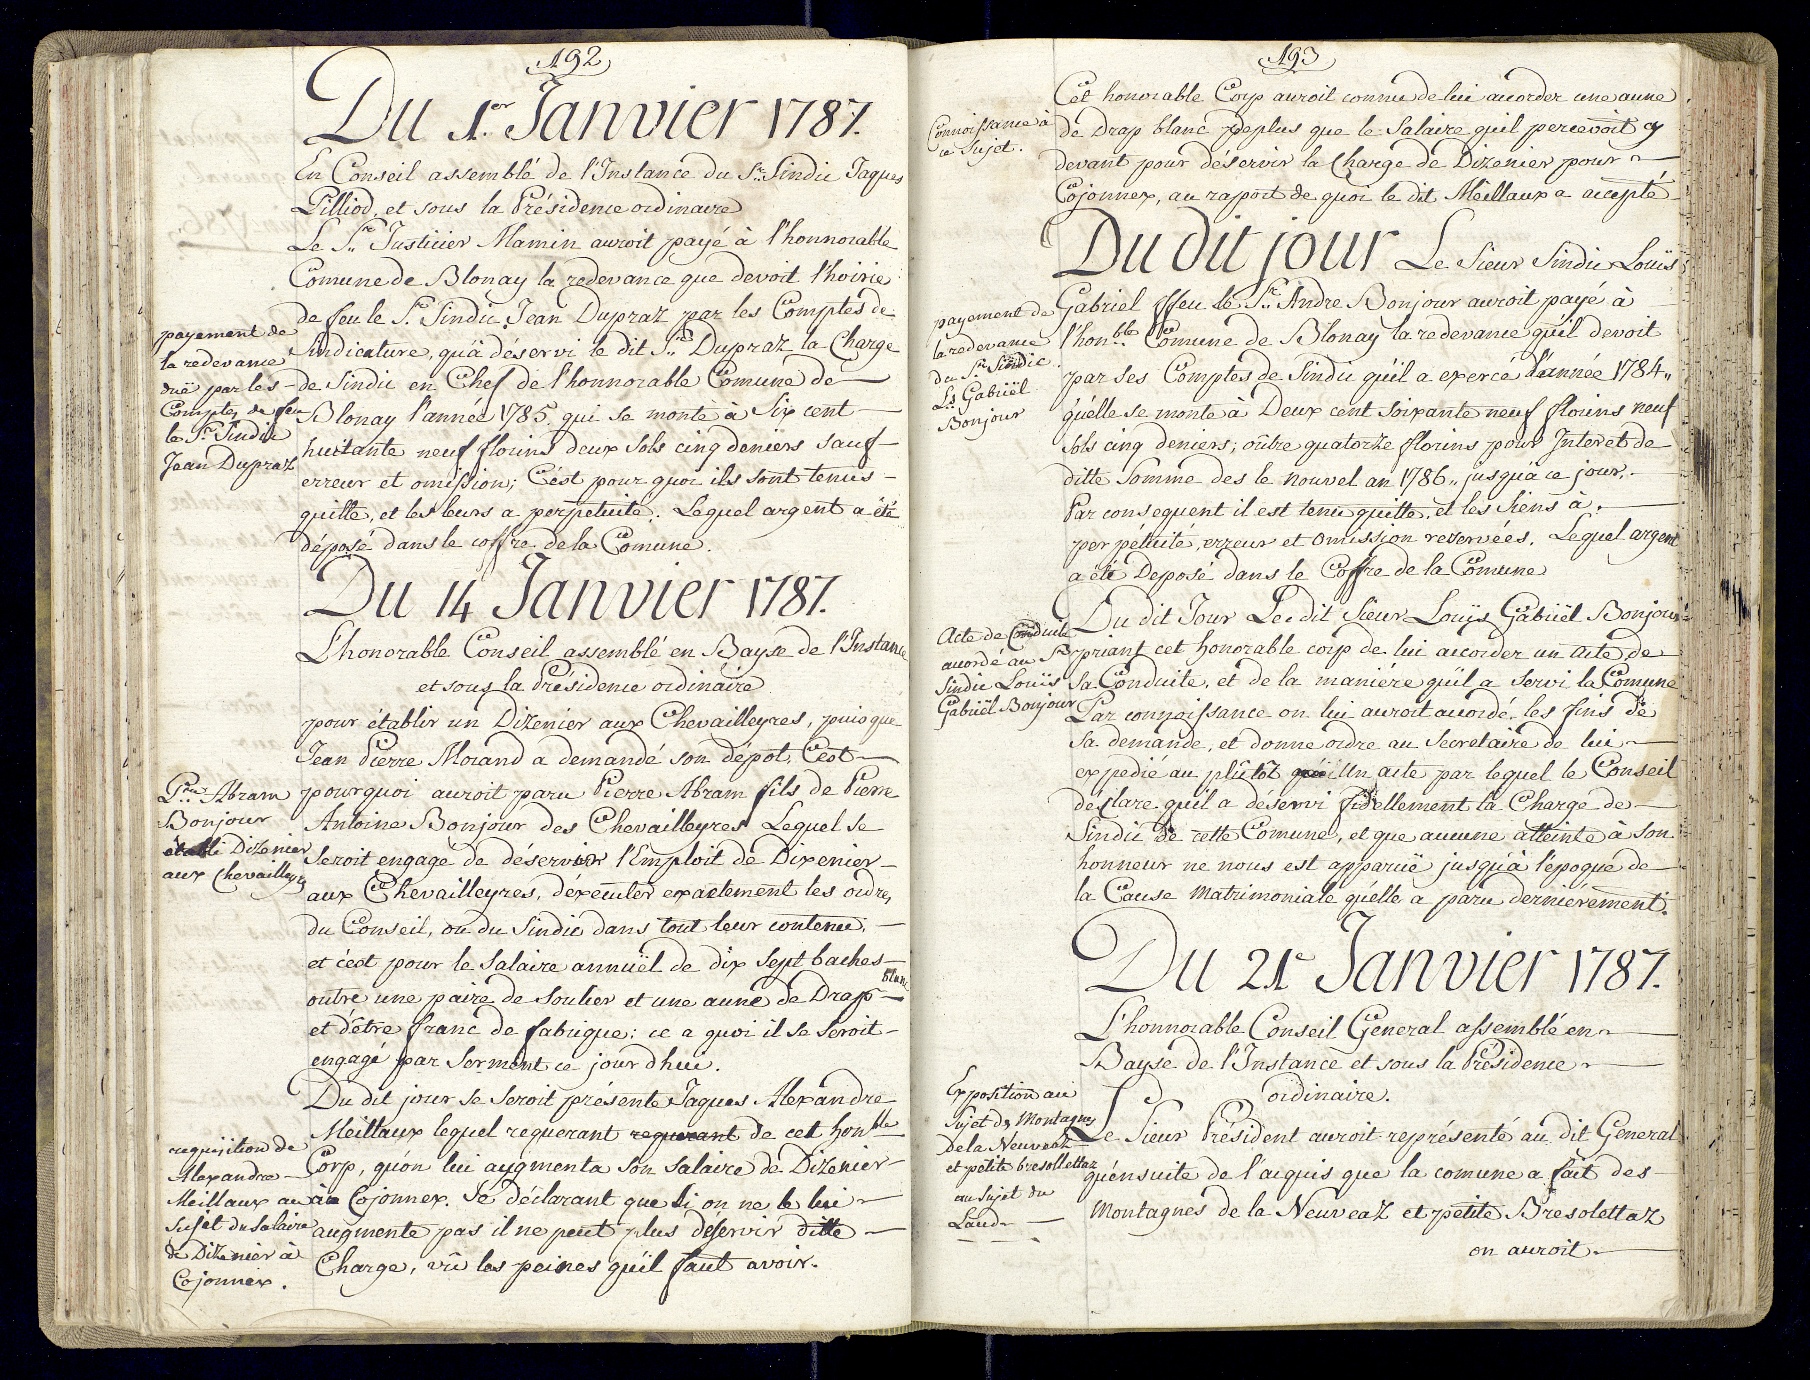 192
Du 1.er Janvier 1787.
En Conseil assemblé de l'Instance du Sr. Sindic Jaques
Pilliod, et sous la Présidence ordinaire
Le Sr. Justicier Mamin auroit payé à l'honnorable
Comune de Blonay la redevance que devoit l'hoirie
de feu le Sr. Sindic Jean Dupraz par les Comptes de
Sindicature, qu'à déservi le dit Sr. Dupraz la Charge
de Sindic en Chef de l'honnorable Comune de
Blonay l'année 1785. qui se monte à Six cent
huitante neuf florins deux sols cinq deniers sauf
erreur et omission; C'ést pour quoi ils sont tenus
quitte, et les leurs a perpetuité. Lequel argent a été
déposé dans le coffre de la Comune.
payement de
la redevance
duë par les
Comptes de feu
le Sr. Sindic
Jean Dupraz
Du 14 Janvier 1787.
L'honorable Conseil assemblé en Bayse de l'Instance
et sous la Présidence ordinaire
pour établir un Dizenier aux Chevailleyres, puis que
Jean Pierre Morand a demandé son dépot, C'est
pourquoi auroit paru Pierre Abram fils de Pierre
Antoine Bonjour des Chevailleyres Lequel se
Seroit engagé de déservir l'Emploit de Dixenier
aux Chevailleyres, d'éxecuter exactement les ordres
du Conseil, ou du Sindic dans tout leur contenu,
et c'est pour le Salaire annuël de dix Sept baches
outre une paire de Soulier et une aune de Drap blanc
et d'être franc de fabrique; ce a quoi il se Seroit
engagé par Serment ce jour d'hui.
Prre. Abram
Bonjour
établi Dizenier
aux Chevailleyres
Du dit jour se Seroit présenté Jaques Alexandre
Meillaux lequel requerant requerant de cet honble
Corp, qu'on lui augmenta son Salaire de Dizenier
à Cojonnex. Se déclarant que Si on ne le lui
augmente pas il ne peut plus déservir ditte
Charge, vû les peines qu'il faut avoir.
requisition de
Alexandre
Meillaux au
Sujet du Salaire
de Dizenier à
Cojonnex.
193
Cet honorable Corp auroit connu de lui acorder une aune
de Drap blanc deplus que le Salaire quil percevoit cy
devant pour déservir la Charge de Dizenier pour
Cojonnex, au raport de quoi le dit Meillaux a accepté
Connoissance à
ce Sujet.
Du dit jour Le Sieur Sindic Louïs
Gabriel ffeu le Sr. Andre Bonjour auroit payé à
l'hon.ble Comune de Blonay la redevance qu'il devoit
par ses Comptes de Sindic qu'il a exercé l'année 1784,,
qu'elle se monte à Deux cent Soixante neuf florins neuf
Sols cinq deniers; oûtre quatorze florins pour Interêt de
ditte Somme des le nouvel an 1786,, jusqu'à ce jour,
Par consequent il est tenu quitte, et les Siens à
perpétuité, erreur et omission reservées. Lequel argent
a été Deposé dans le Coffre de la Comune
payement de
la redevance
du Sr. Sindic
Ls. Gabriël
Bonjour
Du dit Jour Le dit Sieur Louÿs Gabriël Bonjour
priant cet honorable corp de lui accorder un acte de
sa Conduite, et de la maniére qu'il a Servi la Comune
Par connoissance on lui auroit acordé les fins de
Sa demande, et donne ordre au Secretaire de lui
expedié au plûtôt Un acte par lequel le Conseil
déclare qu'il a déservi fidellement la Charge de
Sindic de cette Comune, et que aucune atteinte à Son
honneur ne nous est apparuë jusqu'à l'époque de
la Cause Matrimoniale qu'elle a paru derniérement.
Acte de Conduite
acordé au Sr.
Sindic Louïs
Gabriël Bonjour
Du 21 Janvier 1787.
L'honnorable Conseil General assemblé en
Bayse de l'Instance et sous la Présidence
ordinaire.
Le Sieur Président auroit représenté au dit General
qu'ensuite de l'aquis que la comune a fait des
Montagnes de la Neuveaz et pétite Bresolettaz
on auroit
Exposition au
Sujet ds. Montagnes
De la Neuveaz
et pétite bresollettaz
au Sujet du
Laud.